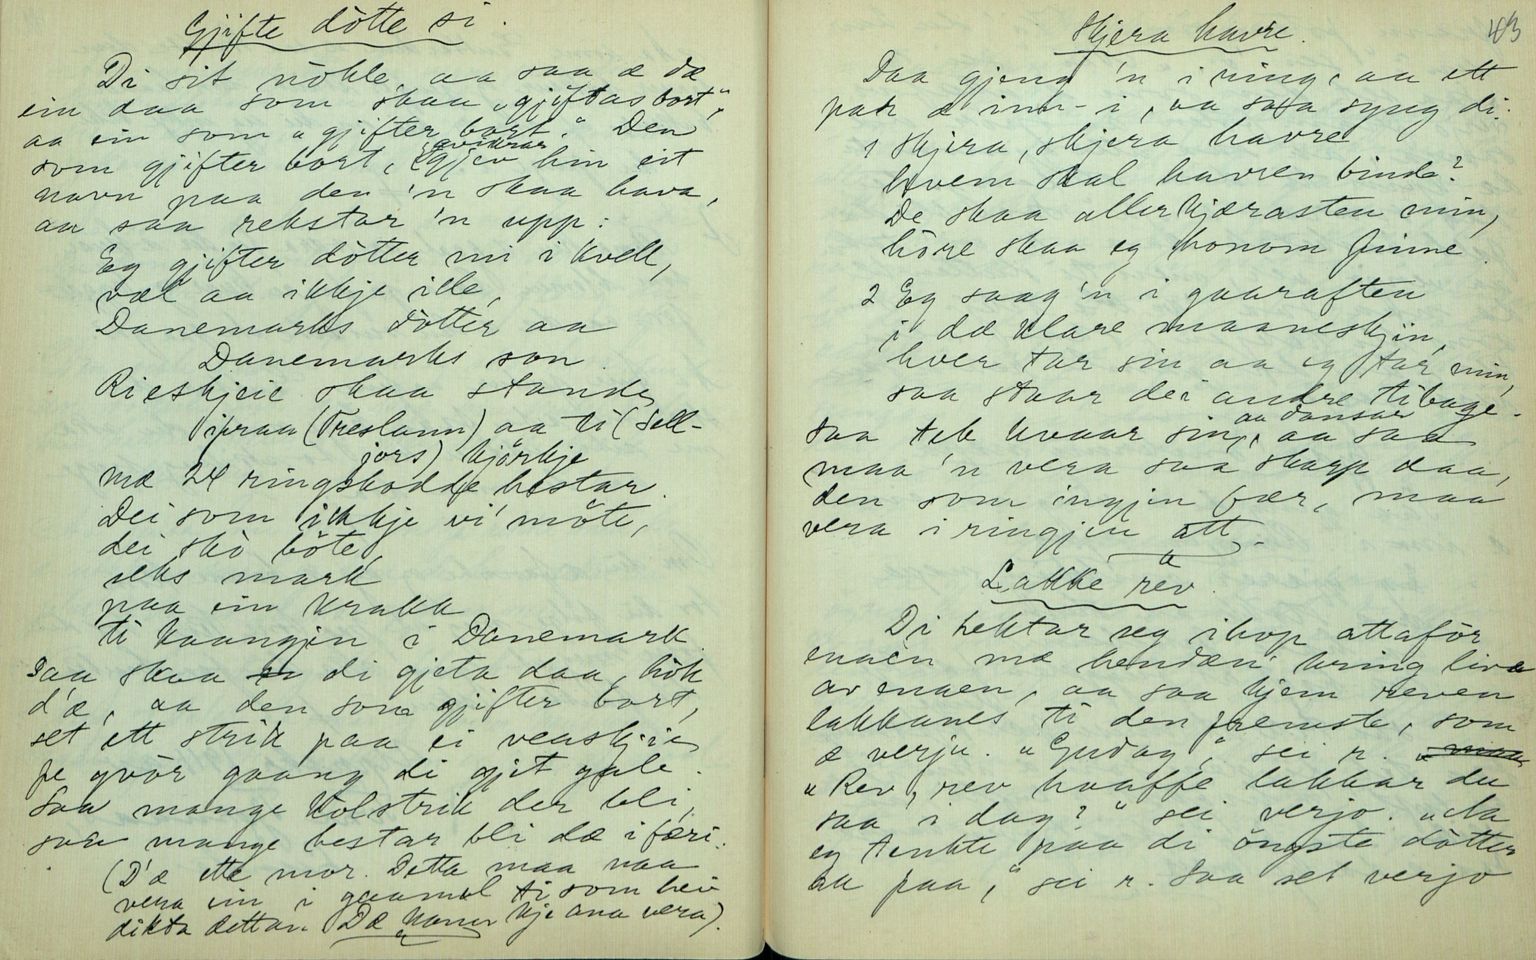 Gjifte dötte si.
Di sit nökle, aa saa æ dæ
ein daa som skaa "gjiftas bort",
aa ein som "gjifter bort." Den
som gjifter bort, gjev hin eit
navn paa den 'n skaa hava,
aa saa rekstar 'n upp:
Eg gjifter dötter mi i kvell,
væl aa ikkje ille,
Danemarks dötter aa
Danemarks son
Rieskjeie skaa stande
ipraa (Treslann) aa ti (Sell-
jors) kjörkje
mæ 24 ringskodde hestar.
Dei som ikkje vi' möte,
dei sko böte
seks mark
paa ein krakk
ti kaangjen i Danemark.
Saa skaa di gjeta daa, hök
d'æ, aa den som gjifter bort,
set ett strik paa ei veaskjie
fe qvör gaang di gjet gale.
Saa mange kolstrik der bli,
saa mange hestar bli dæ i færi.
(D'æ ette mor. Detta maa naa
vera ein i gaamal ti som hev
dikta dettan. Dæ kann kje ana vera).
43
Skjera havre.
Daa gjeng 'n i ring, aa ett
par æ inn-i, aa saa syng di:
1 Skjera, skjera havre
hvem skal havren binde?
De skaa allerkjærasten min,
höre skaa eg honom finne.
2 Eg saag 'n i gaaraften
i dæ klare maaneskjin,
hver tar sin aa eg tar min,
saa staar dei andre tibage.
aa dansar
saa tek kvaar sin, aa saa
maa 'n vera saa skarp daa,
den som ingjen fær, maa
vera i ringjen att.
Lakke rev.
Di hektar seg ihop attaför
enaen mæ hendæn' kring live
av enaen, aa saa kjem reven
lakkanes ti den fremste, som
æ verju. "Gudag," sei r.
"Rev, rev haaffe lakkar du
saa i dag?" sei verjo. "Aa
eg tenkte paa di öngste dötter
aa paa," sei r. Saa set verjo